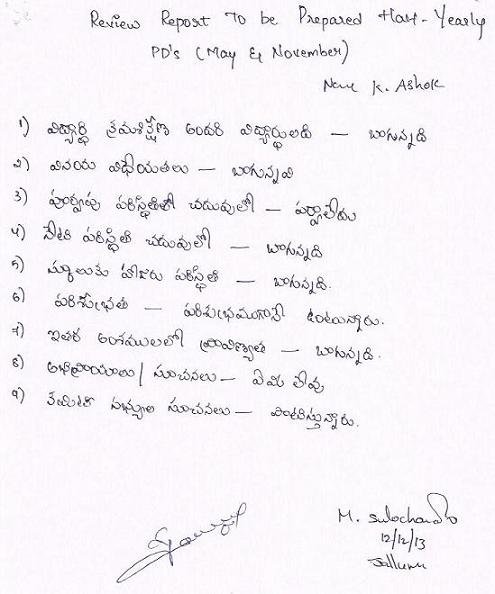 Review Report To be Prepared Half-Yearly
PD's (May & November)
Name K. Ashok
1) విద్యార్థి క్రమశిక్షణ అందరి విద్యార్థులది — బాగున్నది
2) వినయ విధేయతలు — బాగున్నవి
3) పూర్వపు పరిస్థితిలో చదువులో — పర్వాలేదు
4) నేటి పరిస్థితి చదువులో — బాగున్నది
5) స్కూలుకు హాజరు పరిస్థితి — బాగున్నది.
6) పరిశుభ్రత — పరిశుభ్రముగానే ఉంటున్నారు.
7) ఇతర అంశములలో ప్రావిణ్యత — బాగున్నది.
8) అభిప్రాయాలు/ సూచనలు — ఏమి లేవు
9) కమిటీ సభ్యుల సూచనలు — పాటిస్తున్నారు.
M. Sulochana
12/12/13